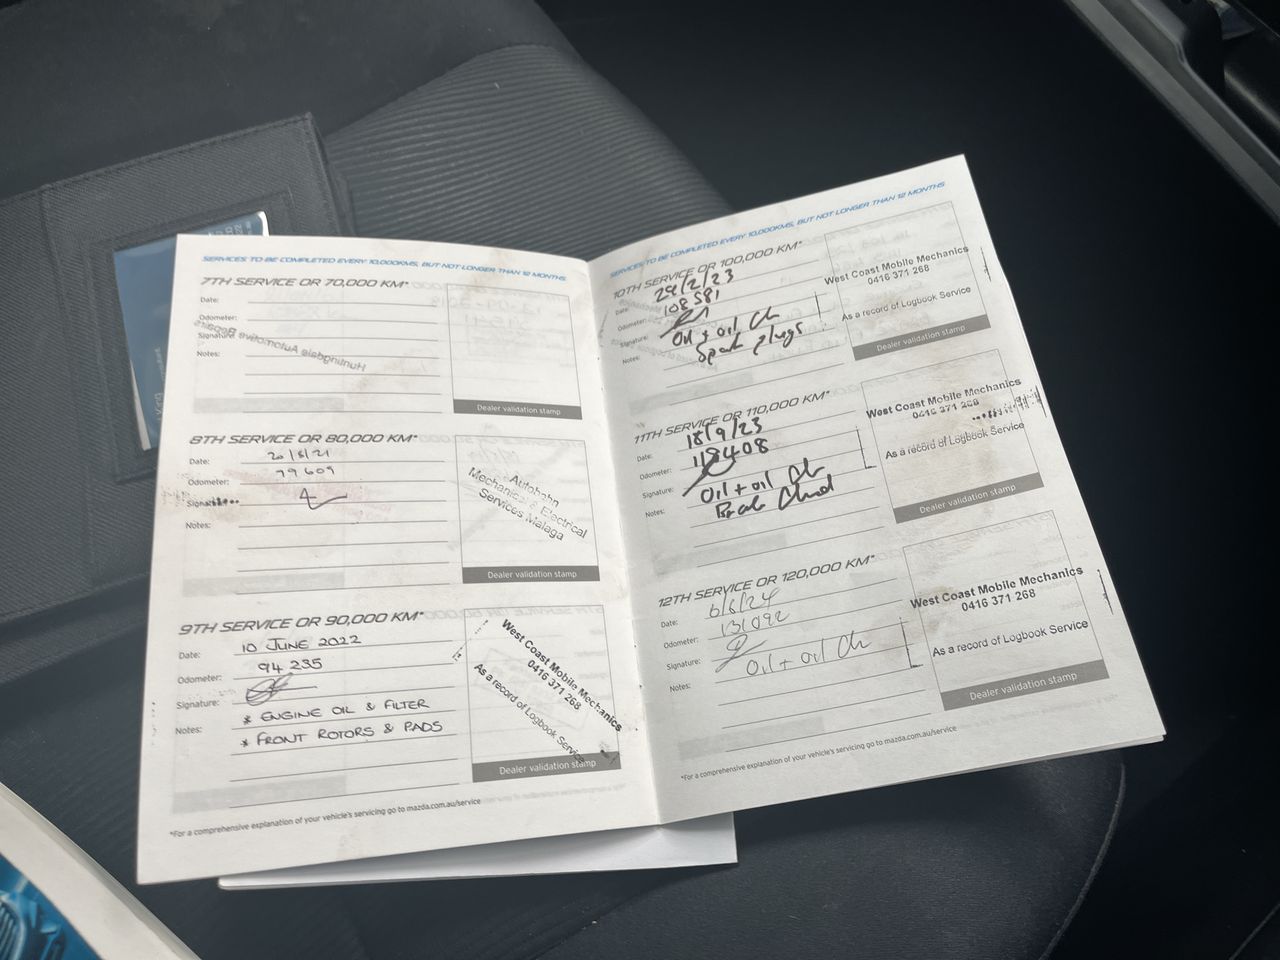 SERVICES TO BE COMPLETED EVERY 10,000KMS, BUT NOT LONGER THAN 12 MONTHS
7TH SERVICE OR 70,000 KM*
Date:
Odometer:
Signature:
Notes:
Huntingdale Automotive
Dealer validation stamp
8TH SERVICE OR 80,000 KM*
Date:
Odometer: 79609
Notes:
Autobahn
Mechanical & Electrical
Services Malaga
Dealer validation stamp
9TH SERVICE OR 90,000 KM*
Date: 10 JUNE 2022
Odometer: 94 235
Signature:
Notes: * ENGINE OIL & FILTER
* FRONT ROTORS & PADS
West Coast Mobile Mechanics
0416 371 268
As a record of Logbook Service
Dealer validation stamp
*For a comprehensive explanation of your vehicle's servicing go to mazda.com.au/service
SERVICES TO BE COMPLETED EVERY 10,000KMS, BUT NOT LONGER THAN 12 MONTHS
10TH SERVICE OR 100,000 KM*
Date: /2/23
Odometer: 108581
Signature:
Notes: Oil + oil
Spark plugs
West Coast Mobile Mechanics
0416 371 268
As a record of Logbook Service
Dealer validation stamp
11TH SERVICE OR 110,000 KM*
Date: 18/9/23
Odometer: 408
Signature:
Notes: Oil + oil
West Coast Mobile Mechanics
0416 371 268
As a record of Logbook Service
Dealer validation stamp
12TH SERVICE OR 120,000 KM*
Date: 6/6/24
Odometer: 131092
Signature:
Notes: Oil + oil
West Coast Mobile Mechanics
0416 371 268
As a record of Logbook Service
Dealer validation stamp
*For a comprehensive explanation of your vehicle's servicing go to mazda.com.au/service